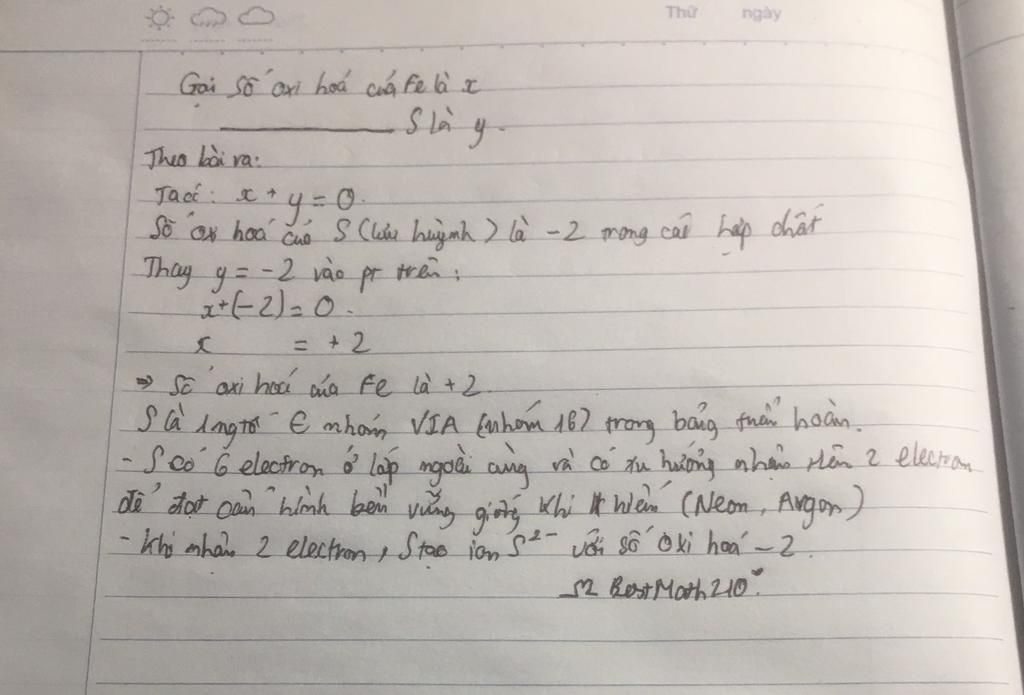 Thứ ngày
Gọi số oxi hoá của Fe là x
S là y.
Theo bài ra:
Ta có: x + y = 0.
Số oxi hoá của S (lưu huỳnh) là -2 trong các hợp chất
Thay y = -2 vào pt trên:
x+(-2) = 0.
x = +2
⇒ Số oxi hoá của Fe là +2.
S là 1 ngtố ∈ nhóm VIA (nhóm 16) trong bảng tuần hoàn.
- S có 6 electron ở lớp ngoài cùng và có xu hướng nhận thêm 2 electron
để đạt cấu hình bền vững giống khí hiếm (Neon, Argon)
- Khi nhận 2 electron, S tạo ion S²⁻ với số oxi hoá -2.
BestMath210